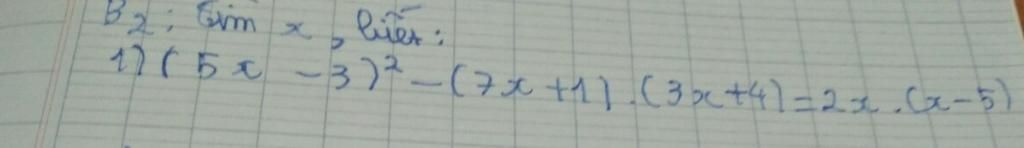 B2: Tìm x, biết:
1) (5x - 3)² - (7x + 1) . (3x + 4) = 2x . (x - 5)